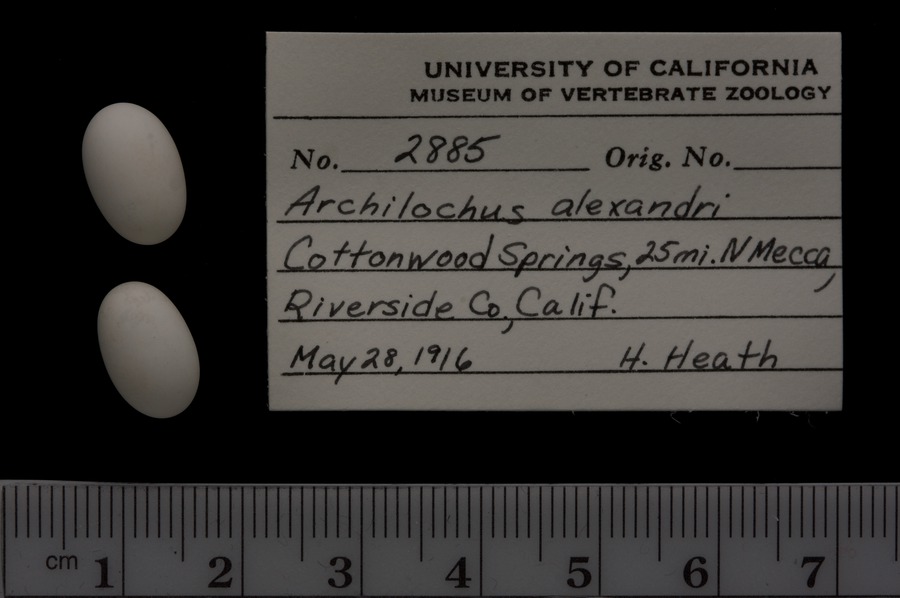 UNIVERSITY OF CALIFORNIA
MUSEUM OF VERTEBRATE ZOOLOGY
No. 2885 Orig. No.
Archilochus alexandri
Cottonwood Springs, 25mi. N Mecca,
Riverside Co., Calif.
May 28, 1916 H. Heath
cm 1 2 3 4 5 6 7